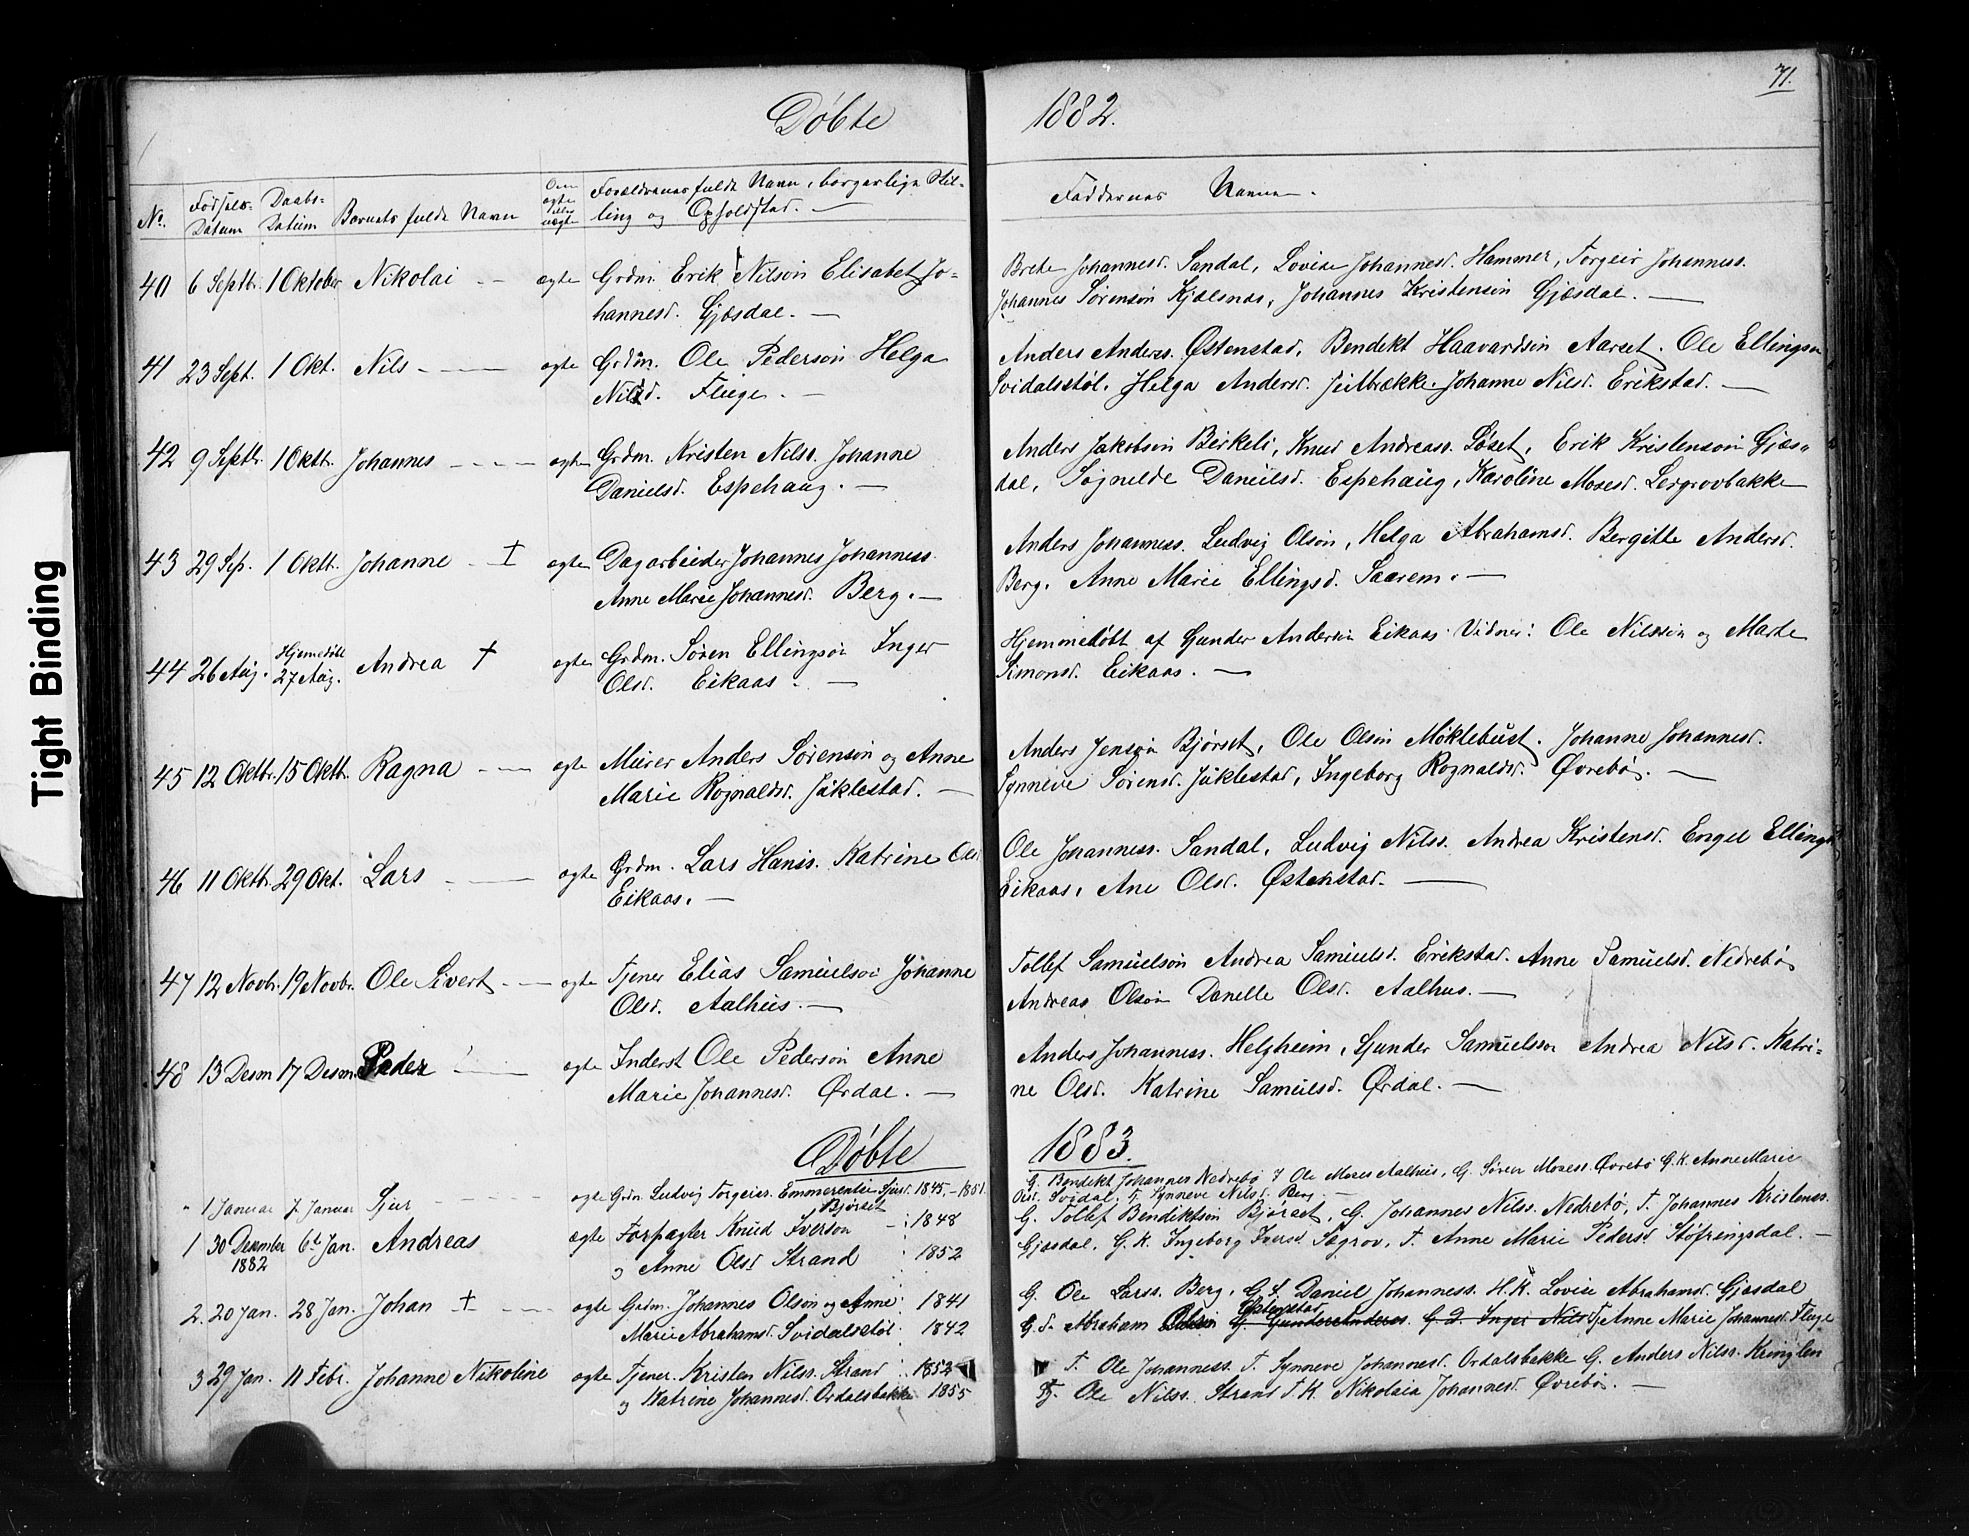 Døbte 1882.
71.
No. Fødsels-Datum Daabs-Datum Barnets fulde Navn Om ægte eller uægte Forældrenes fulde Navn, borgerlige Stil-
ling og Opholdsted. Faddernes Navne.
40 6 Septbr. 1 Oktober Nikolai ægte Grdm. Erik Nilsøn Elisabet Jo-
hannesd. Gjæsdal.
Brete Johannesd. Sandal, Lovise Johannesd. Hammer, Torgeir Johanness.
Johannes Sørensøn Kjælsnæs, Johannes Kristensøn Gjæsdal.
41 23 Sept. 1 Okt. Nils ægte Grdm. Ole Pedersøn Helga
Nilsd. Fluge.
Anders Anderss. Østenstad, Bendekt Haavardsøn Aarset. Ole Ellingsøn
Svidalsstøl. Helga Andersd. Johanne Nilsd. Erikstad.
42 9 Septbr. 1 Oktbr. Johannes ægte Grdm. Kristen Nilss. Johanne
Danielsd. Espehaug.
Anders Jakobsøn Birkeli, Knud Andreass. Løset, Erik Kristensøn Gjæs-
dal, Søgnelde Danielsd. Espehaug, Karoline Mosesd. Lergrovbakke
43 29 Sep. 1 Oktb. Johanne † ægte Dagarbeider Johannes Johanness.
Anne Marie Johannesd. Berg.
Anders Johanness. Ludvig Olsøn, Helga Abrahamsd. Bergitte Andersd.
Berg. Anne Marie Ellingsd. Saarem.
44 26 Aug. Hjemmedøbt 27 Aug. Andrea † ægte Grdm. Søren Ellingsøn Inger
Olsd. Eikaas.
Hjemmedøbt af Gunder Andersøn Eikaas. Vidner: Ole Nilssøn og Marte
Simonsd. Eikaas.
45 12 Oktbr. 15 Oktb. Ragna ægte Murer Anders Sørensøn og Anne
Marie Rognaldsd. Jüklestad.
Anders Jensøn Bjørset, Ole Olsøn Møklebust. Johanne Johannesd.
Synneve Sørensd. Jüklestad, Ingeborg Rognaldsd. Øvrebø.
46 11 Oktbr. 29 Okt. Lars ægte Grdm. Lars Hanss. Katrine Olsd.
Eikaas.
Ole Johanness. Sandal, Ludvig Nilss. Andrea Kristensd. Engel Ellingsd.
Eikaas, Ane Olsd. Østenstad.
47 12 Novbr. 19 Novbr. Ole Sivert ægte Tjener Elias Samuelsøn Johanne
Olsd. Aalhus.
Tollef Samuelsøn Andrea Samuelsd. Erikstad. Anne Samuelsd. Nedrebø
Andreas Olsøn Danelle Olsd. Aalhus.
48 13 Desm 17 Desm. Peder ægte Inderst Ole Pedersøn Anne
Marie Johannesd. Ørdal.
Anders Johanness. Helgheim, Gunder Samuelsøn Andrea Nilsd. Katri-
ne Olsd. Katrine Samuelsd. Ørdal.
Døbte 1883.
1 Januar 7 Januar Sjur ægte Grdm. Ludvig Torgeirs. Emmerentse Sjursd. 1845.-1851.
Bjørset
G. Bendekt Johannes Nedrebø Ole Moses Aalhus, G. Søren Mosess. Øvrebø G.K. Anne Marie
Olsd. Svidal, T. Synneve Nilsd. Berg.
1 30 Desember 1882 6te Jan. Andreas ægte Forpagter Knud Iverson 1848
og Anne Olsd Strand 1852
G. Tollef Bendiktsøn Bjørset, G. Johannes Nilss. Nedrebø, T. Johannes Kristenss.
Gjæsdal, G.K. Ingeborg Iversd. Søgrov, T. Anne Marie Pedersd Støfringsdal.
2. 20 Jan. 28 Jan. Johan † ægte Grdm. Johannes Olsøn og Anne 1841
Marie Abrahamsd. Svidalsstøl 1842
G. Ole Larss. Berg, G.S. Daniel Johanness. H.K. Lovise Abrahamsd. Gjæsdal
G.S. Abraham Østenstad Anne Marie Johannesd. Fluge
3 29 Jan. 11 Febr. Johanne Nikoline ægte Tjener. Kristen Nilss. Strand 1852
og Katrine Johannesd. Ordalsbakke 1855
T. Ole Johanness. T. Synneve Johannesd. Ordalsbakke G. Anders Nilss. Kringlen
Tj. Ole Nilss. Strand T.K. Nikolaia Johannesd. Øvrebø.
Tight Binding